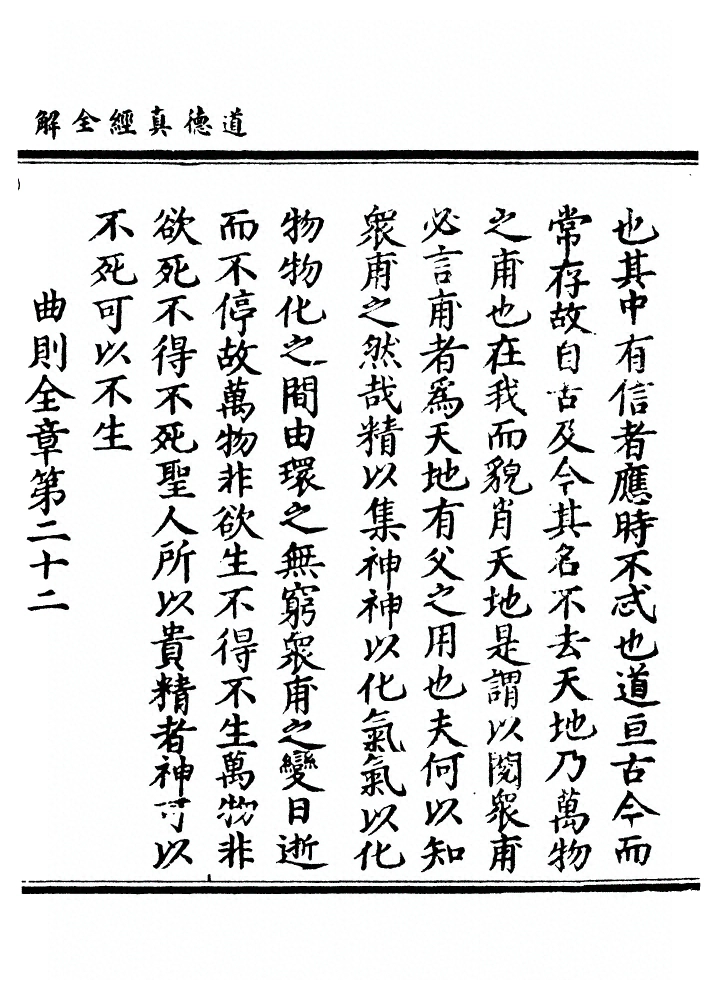 道德真經全解
也其中有信者應時不忒也道亘古今而
常存故自古及今其名不去天地乃萬物
之甫也在我而貌肖天地是謂以閱衆甫
必言甫者爲天地有父之用也夫何以知
衆甫之然哉精以集神神以化氣氣以化
物物化之間由環之無窮衆甫之變日逝
而不停故萬物非欲生不得不生萬物非
欲死不得不死聖人所以貴精者神可以
不死可以不生
曲則全章第二十二